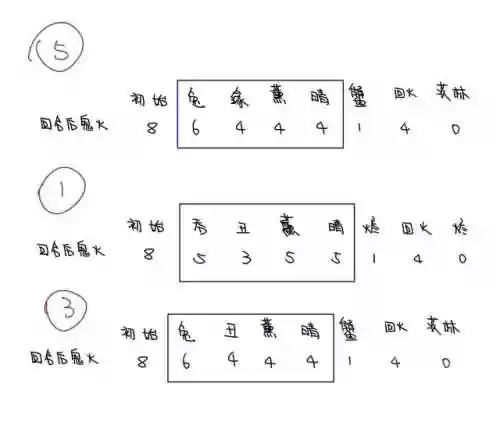 5
初始 兔 缘 薰 晴 蟹 回火 责妹
回合后鬼火 8 6 4 4 4 1 4 0
1
初始 吞 丑 薰 晴 烬 回火 烬
回合后鬼火 8 5 3 5 5 1 4 0
3
初始 兔 丑 薰 晴 蟹 回火
回合后鬼火 8 6 4 4 4 1 4 0